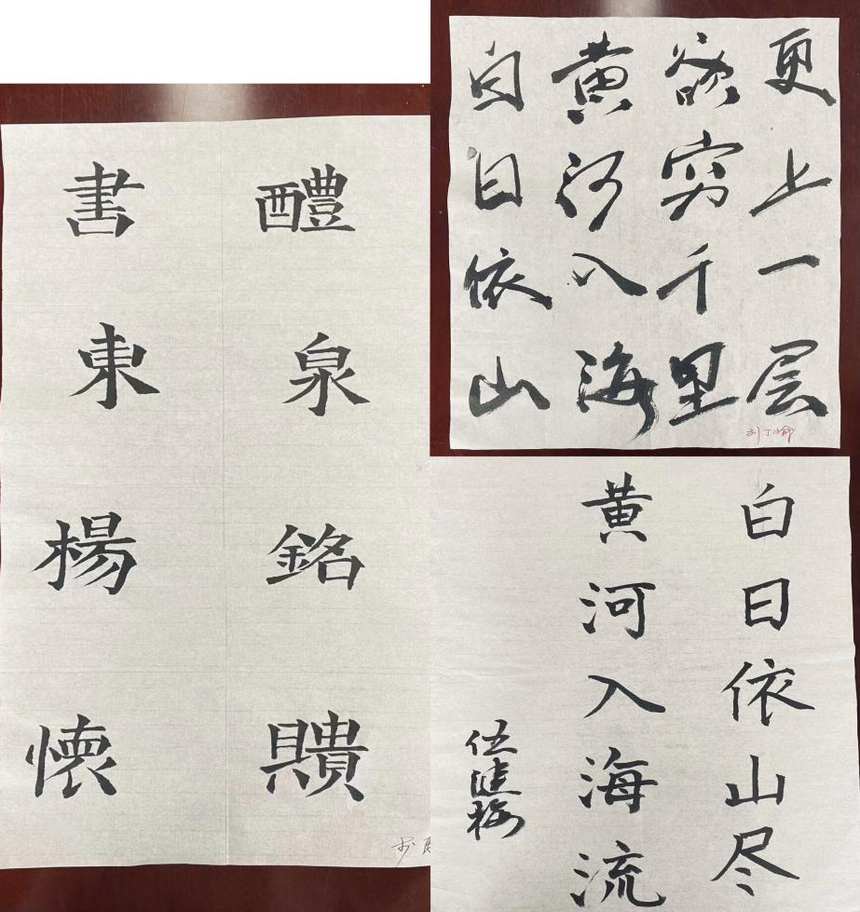 醴泉銘
書東楊懷
白日依山
黄河入海
欲穷千里
更上一层
白日依山尽
黄河入海流
伍健梅